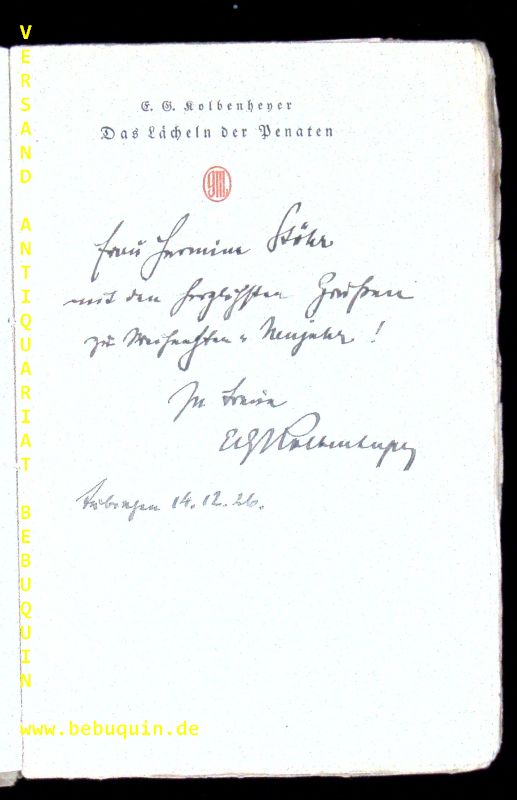 E. G. Kolbenheyer
Das Lächeln der Penaten
gm
Frau Hermine Stöhr
mit den herzlichsten Grüßen
zu Weihnachten u. Neujahr!
In Treue
EGKolbenheyer
Tübingen 14.12.26.
VERSAND ANTIQUARIAT BEBUQUIN
www.bebuquin.de